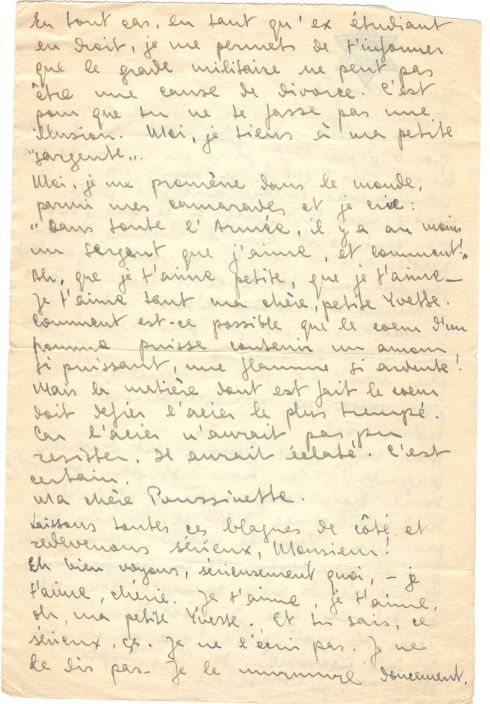 En tout cas, en tant qu'ex étudiant
en droit, je me permets de t'informer
que le grade militaire ne peut pas
être une cause de divorce. C'est
pour que tu ne te fasse pas une
illusion. Moi, je tiens à ma petite
"sargente".
Moi, je me promène dans le monde,
parmi mes camarades et je crie:
"Dans toute l'Armée, il y a au moins
un sergent que j'aime, et comment!"
Ah, que je t'aime petite, que je t'aime —
Je t'aime tant ma chère, petite Yvette.
Comment est-ce possible que le coeur d'un
homme puisse contenir un amour
si puissant, une flamme si ardente!
Mais la matière dont est fait le coeur
doit defier l'acier le plus trempé.
Car l'acier n'aurait pas pu
resister. Il aurait éclaté. C'est
certain.
Ma chère Poussinette.
Laissons toutes ces blagues de côté et
redevenons sérieux, Monsieur!
Eh bien voyons, sérieusement quoi, — je
t'aime, chérie. Je t'aime, je t'aime,
oh, ma petite Yvette. Et tu sais, ce
sérieux, ça. Je ne l'écris pas. Je ne
le dis pas — Je le murmure doucement.